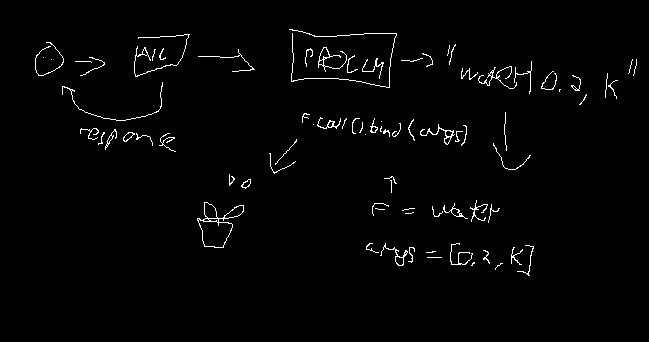 PROCLM
"water | 0.2, K"
response
F.call().bind(args)
F = water
args = [0.2, K]